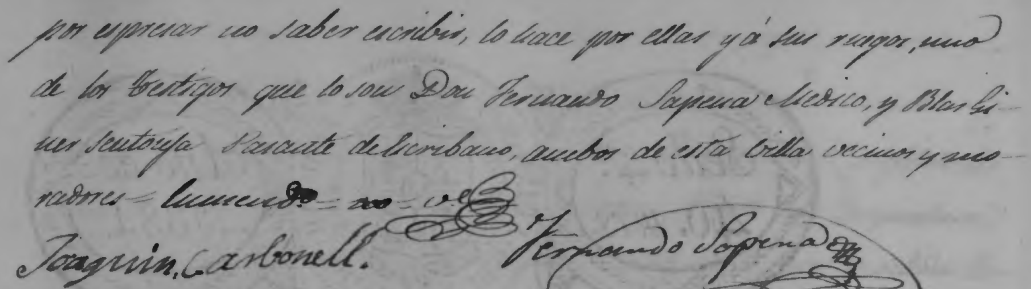 por espresar no saber escribir, lo hace por ellas y á sus ruegos, uno
de los testigos que lo son Don Fernando Sapena Medico, y Blas Gi-
ner Sentonja Pasante de Escribano, ambos de esta Villa vecinos y mo-
radores = Enmendo = = v.e
Joaquin, Carbonell. Fernando Sapena